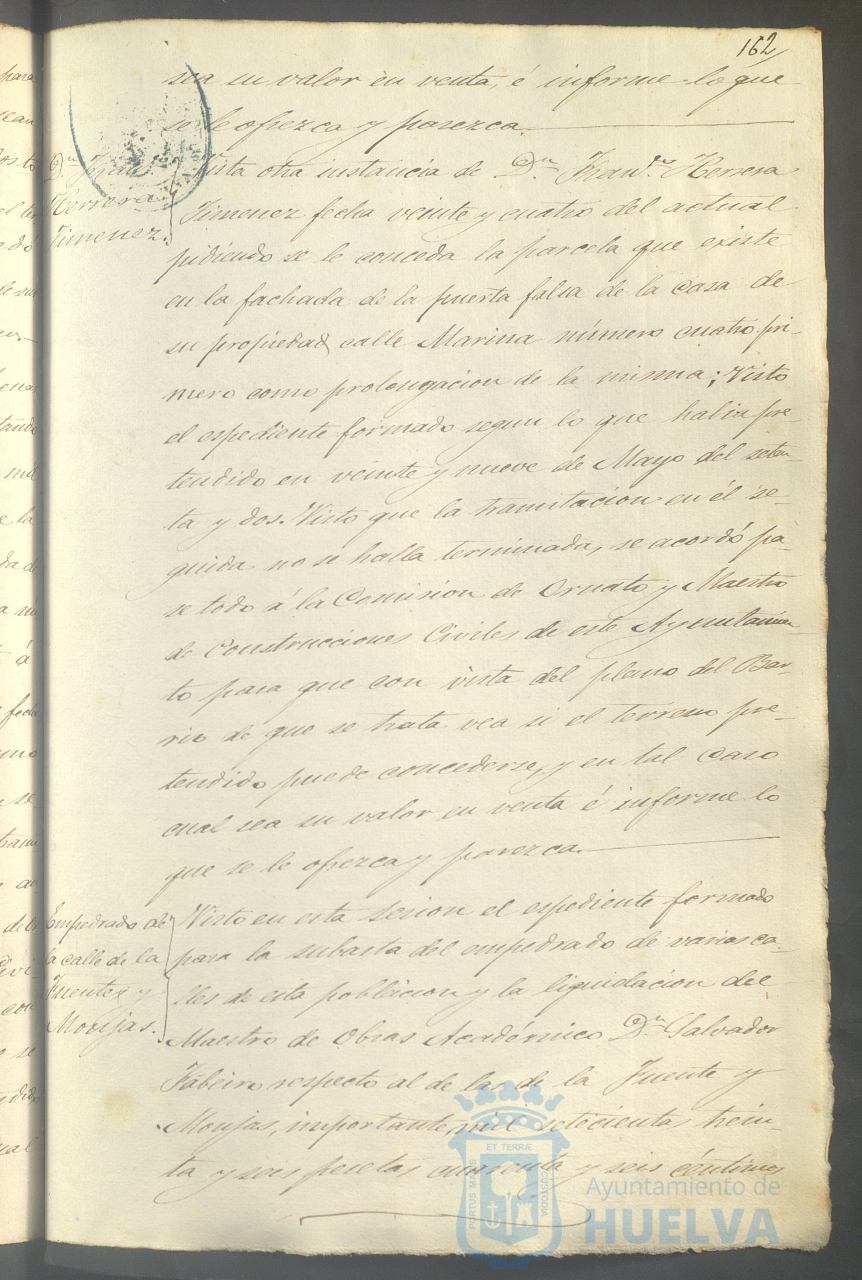 162
sea su valor en venta, é informe lo que
se le ofrezca y parezca.
Dn Fran
Herrera
Jimenez.
Vista otra instancia de Dn Franco Herrera
Jimenez fecha veinte y cuatro del actual
pidiendo se le conceda la parcela que existe
en la fachada de la puerta falsa de la casa de
su propiedad calle Marina número cuatro pri-
mero como prolongacion de la misma; Visto
el espediente formado segun lo que habia pre-
tendido en veinte y nueve de Mayo del seten-
ta y dos. Visto que la tramitacion en él se-
guida no se halla terminada, se acordó pa-
se todo á la Comision de Ornato y Maestro
de Construcciones Civiles de este Ayuntamien-
to para que con vista del plano del Bar-
rio de que se trata vea si el terreno pre-
tendido puede concederse, y en tal caso
cual sea su valor en venta é informe lo
que se le ofrezca y parezca.
Empedrado de
la calle de la
Fuente y
Monjas.
Visto en esta sesion el espediente formado
para la subasta del empedrado de varias ca-
lles de esta poblacion y la liquidacion del
Maestro de Obras Académico Dn Salvador
respecto al de las de la Fuente y
Monjas, importante mil setecientas trein-
ta y seis pesetas cuarenta y seis céntimos
PORTUS MARIS
ET TERRÆ
CUSTODIA
Ayuntamiento de
HUELVA